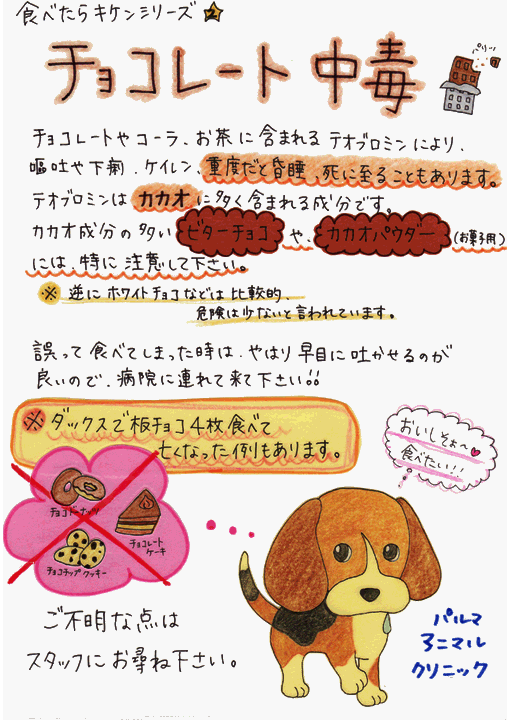 食べたらキケンシリーズ
チョコレート中毒
パリッ
チョコレートやコーラ、お茶に含まれるテオブロミンにより、
嘔吐や下痢、ケイレン、重度だと昏睡、死に至ることもあります。
テオブロミンはカカオに多く含まれる成分です。
カカオ成分の多いビターチョコや、カカオパウダー(お菓子用)
には、特に注意して下さい。
※逆にホワイトチョコなどは比較的、
危険は少ないと言われています。
誤って食べてしまった時は、やはり早目に吐かせるのが
良いので、病院に連れて来て下さい!!
※ダックスで板チョコ4枚食べて
亡くなった例もあります。
おいしそぉ〜♥
食べたい!!
チョコドーナッツ
チョコレート
ケーキ
チョコチップクッキー
ご不明な点は
スタッフにお尋ね下さい。
パルマ
アニマル
クリニック